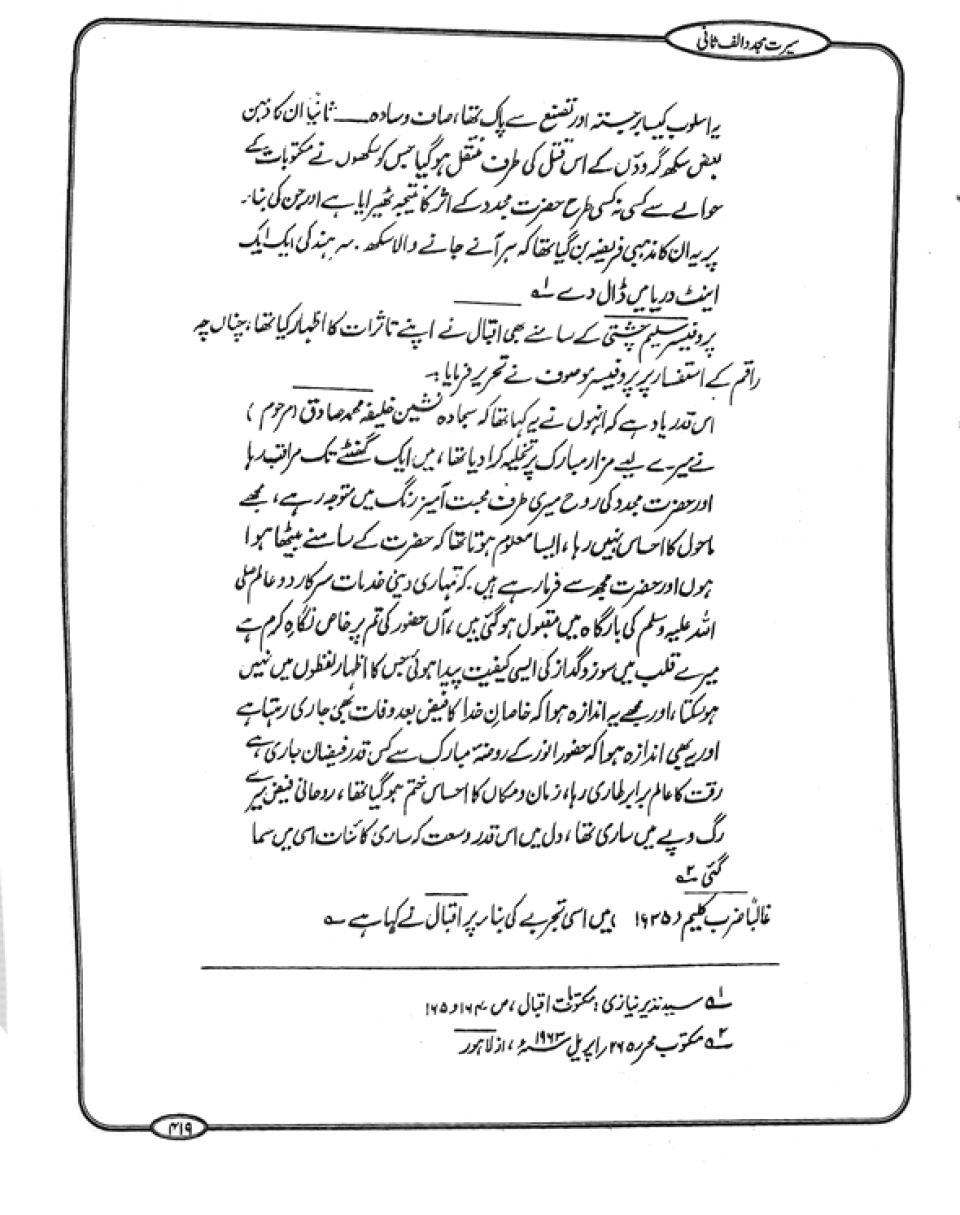 سیرت مجدد الف ثانی
یہ اسلوب کیسا برجستہ اور تصنع سے پاک تھا، صاف و سادہ ــــ ثانیاً ان کا ذہن
بعض سکھ گروؤں کے اس قتل کی طرف منتقل ہوگیا جس کو سکھوں نے مکتوبات کے
حوالے سے کسی نہ کسی طرح حضرت مجدد کے اثر کا نتیجہ ٹھیرایا ہے اور جن کی بناء
پر یہ ان کا مذہبی فریضہ بن گیا تھا کہ ہر آنے جانے والا سکھ۔ سرہند کی ایک ایک
اینٹ دریا میں ڈال دے ؎۱
پروفیسر سلیم چشتی کے سامنے بھی اقبال نے اپنے تاثرات کا اظہار کیا تھا، چناں چہ
راقم کے استفسار پر پروفیسر موصوف نے تحریر فرمایا :۔
اس قدر یاد ہے کہ انہوں نے یہ کہا تھا کہ سجادہ نشین خلیفہ محمد صادق (مرحوم)
نے میرے لیے مزار مبارک پر تخلیہ کرا دیا تھا، میں ایک گھنٹے تک مراقب رہا
اور حضرت مجدد کی روح میری طرف محبت آمیز رنگ میں متوجہ رہے، مجھے
ماحول کا احساس نہیں رہا، ایسا معلوم ہوتا تھا کہ حضرت کے سامنے بیٹھا ہوا
ہوں اور حضرت مجھ سے فرما رہے ہیں۔ کہ تمہاری دینی خدمات سرکار دو عالم صلی
اللہ علیہ وسلم کی بارگاہ میں مقبول ہوگئی ہیں، آں حضور کی تم پر خاص نگاہِ کرم ہے
میرے قلب میں سوز و گداز کی ایسی کیفیت پیدا ہوئی جس کا اظہار لفظوں میں نہیں
ہوسکتا، اور مجھے یہ اندازہ ہوا کہ خاصانِ خدا کا فیض بعد وفات بھی جاری رہتا ہے
اور یہ بھی اندازہ ہوا کہ حضور انور کے روضۂ مبارک سے کس قدر فیضان جاری ہے
رقت کا عالم برابر طاری رہا، زمان و مکاں کا احساس ختم ہوگیا تھا، روحانی فیض میرے
رگ و پے میں ساری تھا، دل میں اس قدر وسعت کہ ساری کائنات اسی میں سما
گئی ؎۲
غالباً ضرب کلیم (۱۹۳۵) میں اسی تجربے کی بناء پر اقبال نے کہا ہے ؎
؎۱ سید نذیر نیازی : مکتوبات اقبال، ص ۱۶۴ و ۱۶۵
؎۲ مکتوب محررہ ۲۶ اپریل ۱۹۶۳ء، از لاہور
۴۱۹